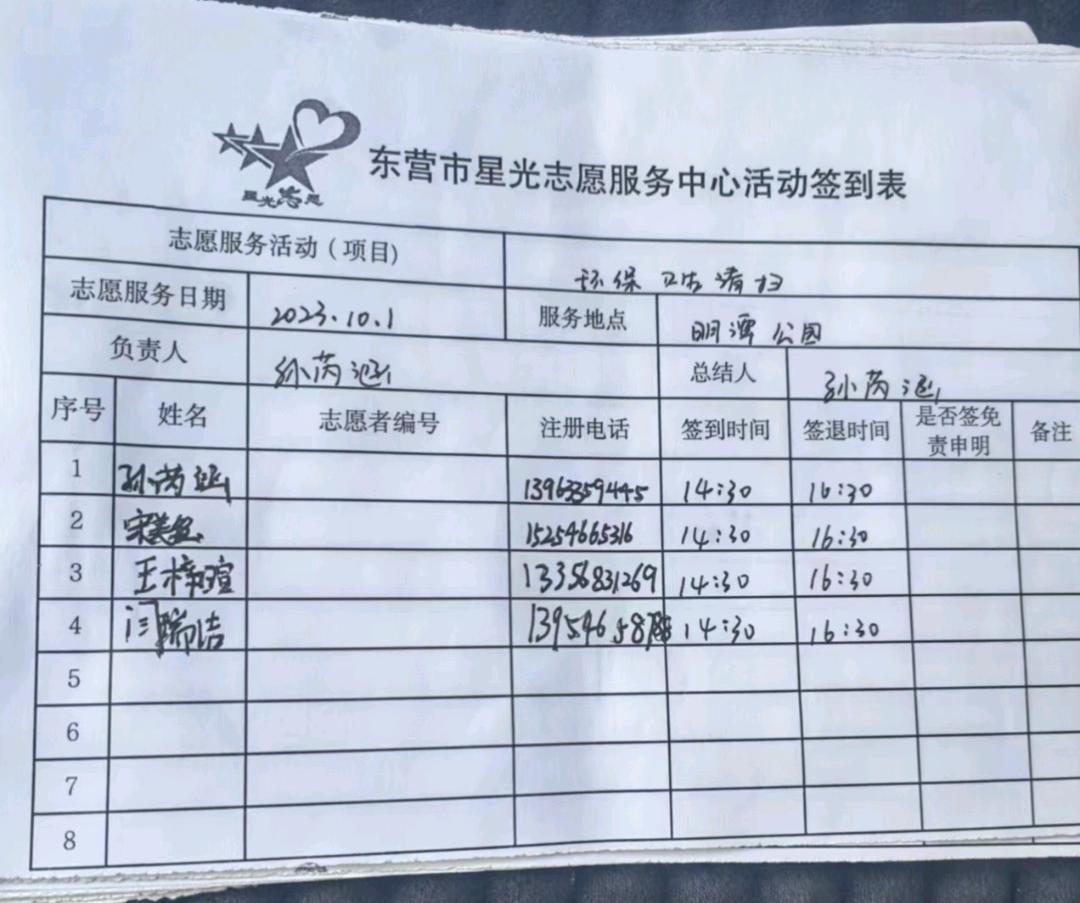 星光志愿
东营市星光志愿服务中心活动签到表
志愿服务活动（项目) 环保卫生清扫
志愿服务日期 2023.10.1 服务地点 明潭公园
负责人 孙芮涵 总结人 孙芮涵
序号 姓名 志愿者编号 注册电话 签到时间 签退时间 是否签免责申明 备注
1 孙芮涵 14:30 16:30
2 宋美 15254665316 14:30 16:30
3 王梓瑄 13356831269 14:30 16:30
4 闫瑞洁 14:30 16:30
5
6
7
8